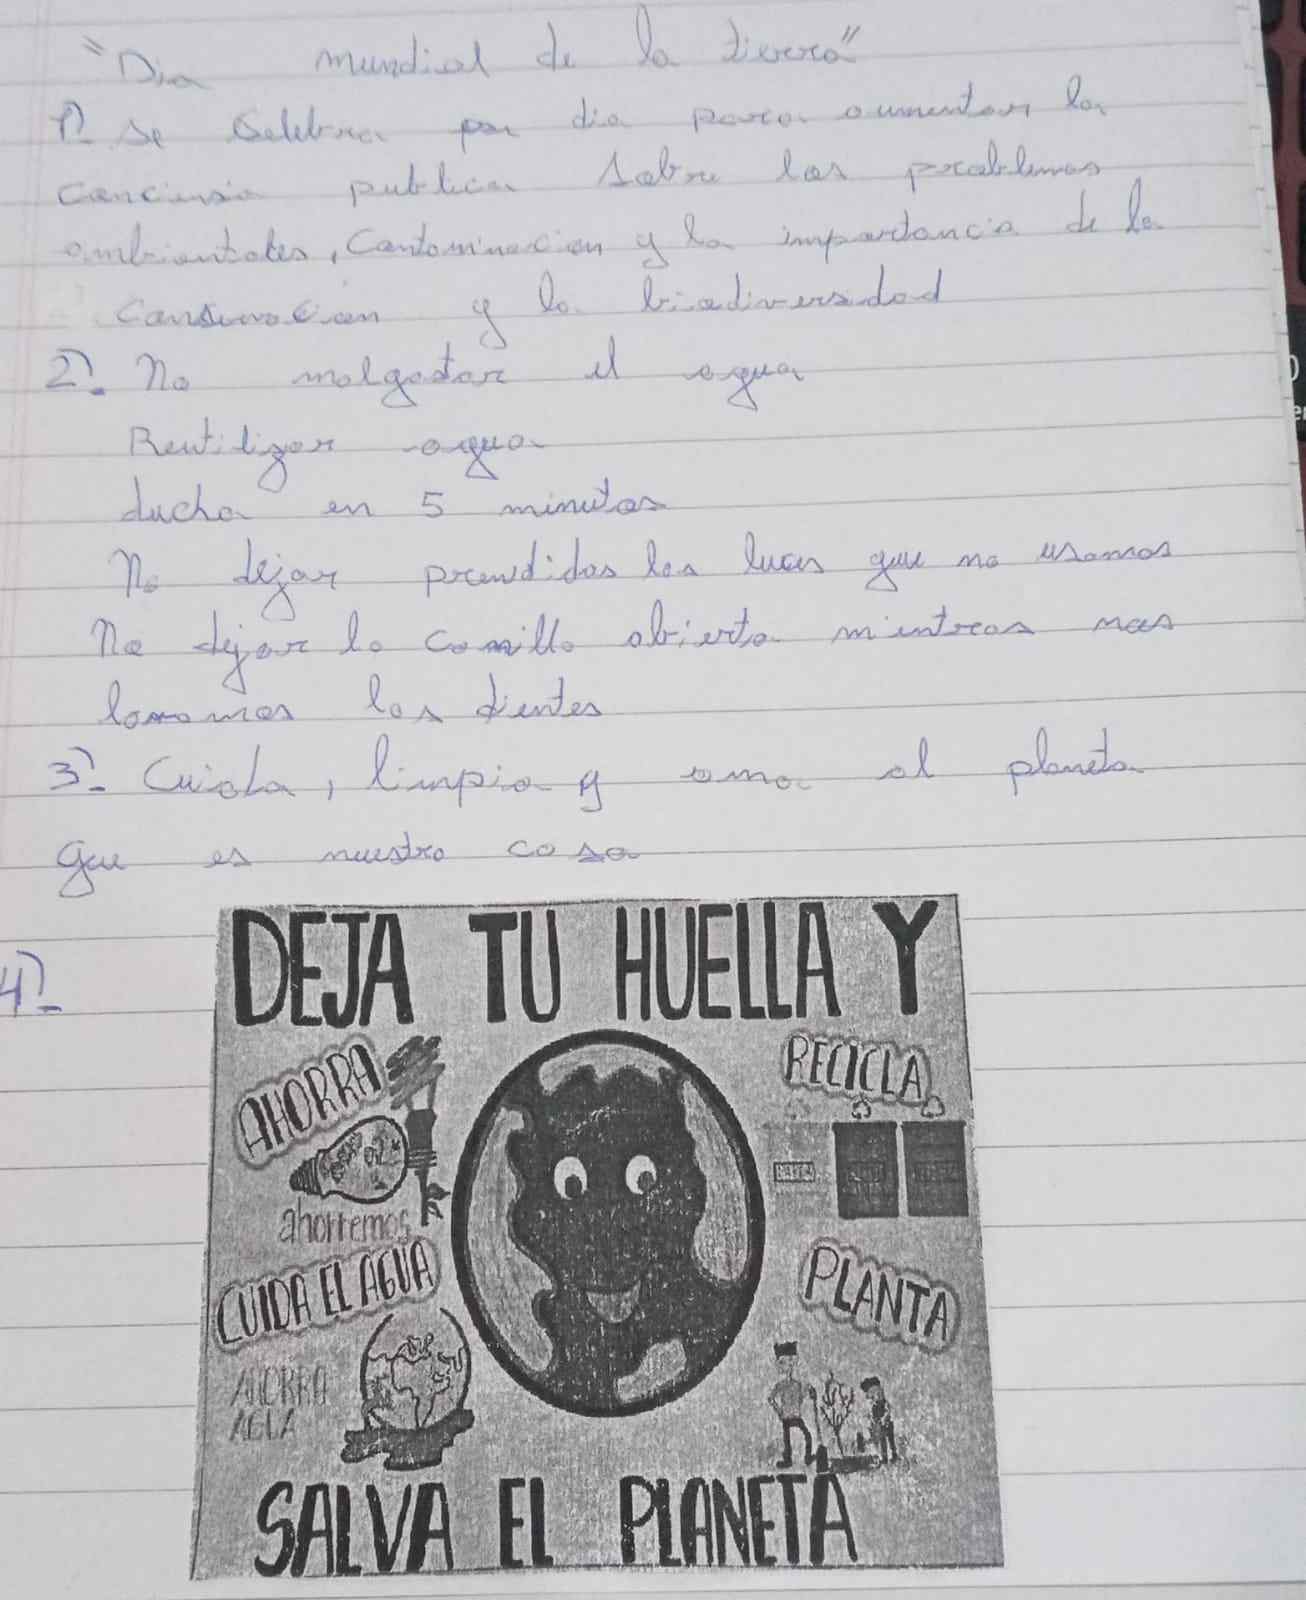 "Dia mundial de la tierra"
1)- se Selebra por dia para aumentar la
conciensia publica sobre los problemas
ambientales, Contaminacion y la importancia de la
Conservacion y la biodiversidad
2)- No malgastar el agua
Reutilizar agua
ducha en 5 minutos
No dejar prendidas las luces que no usamos
No dejar la canilla abierta mientras nos
lavamos los dientes
3)- Cuida, limpia y ama al planeta
que es nuestra casa
4)-
DEJA TU HUELLA Y
AHORRA
RECICLA
ahorremos
CUIDA EL AGUA
PLANTA
AHORRA
AGUA
SALVA EL PLANETA